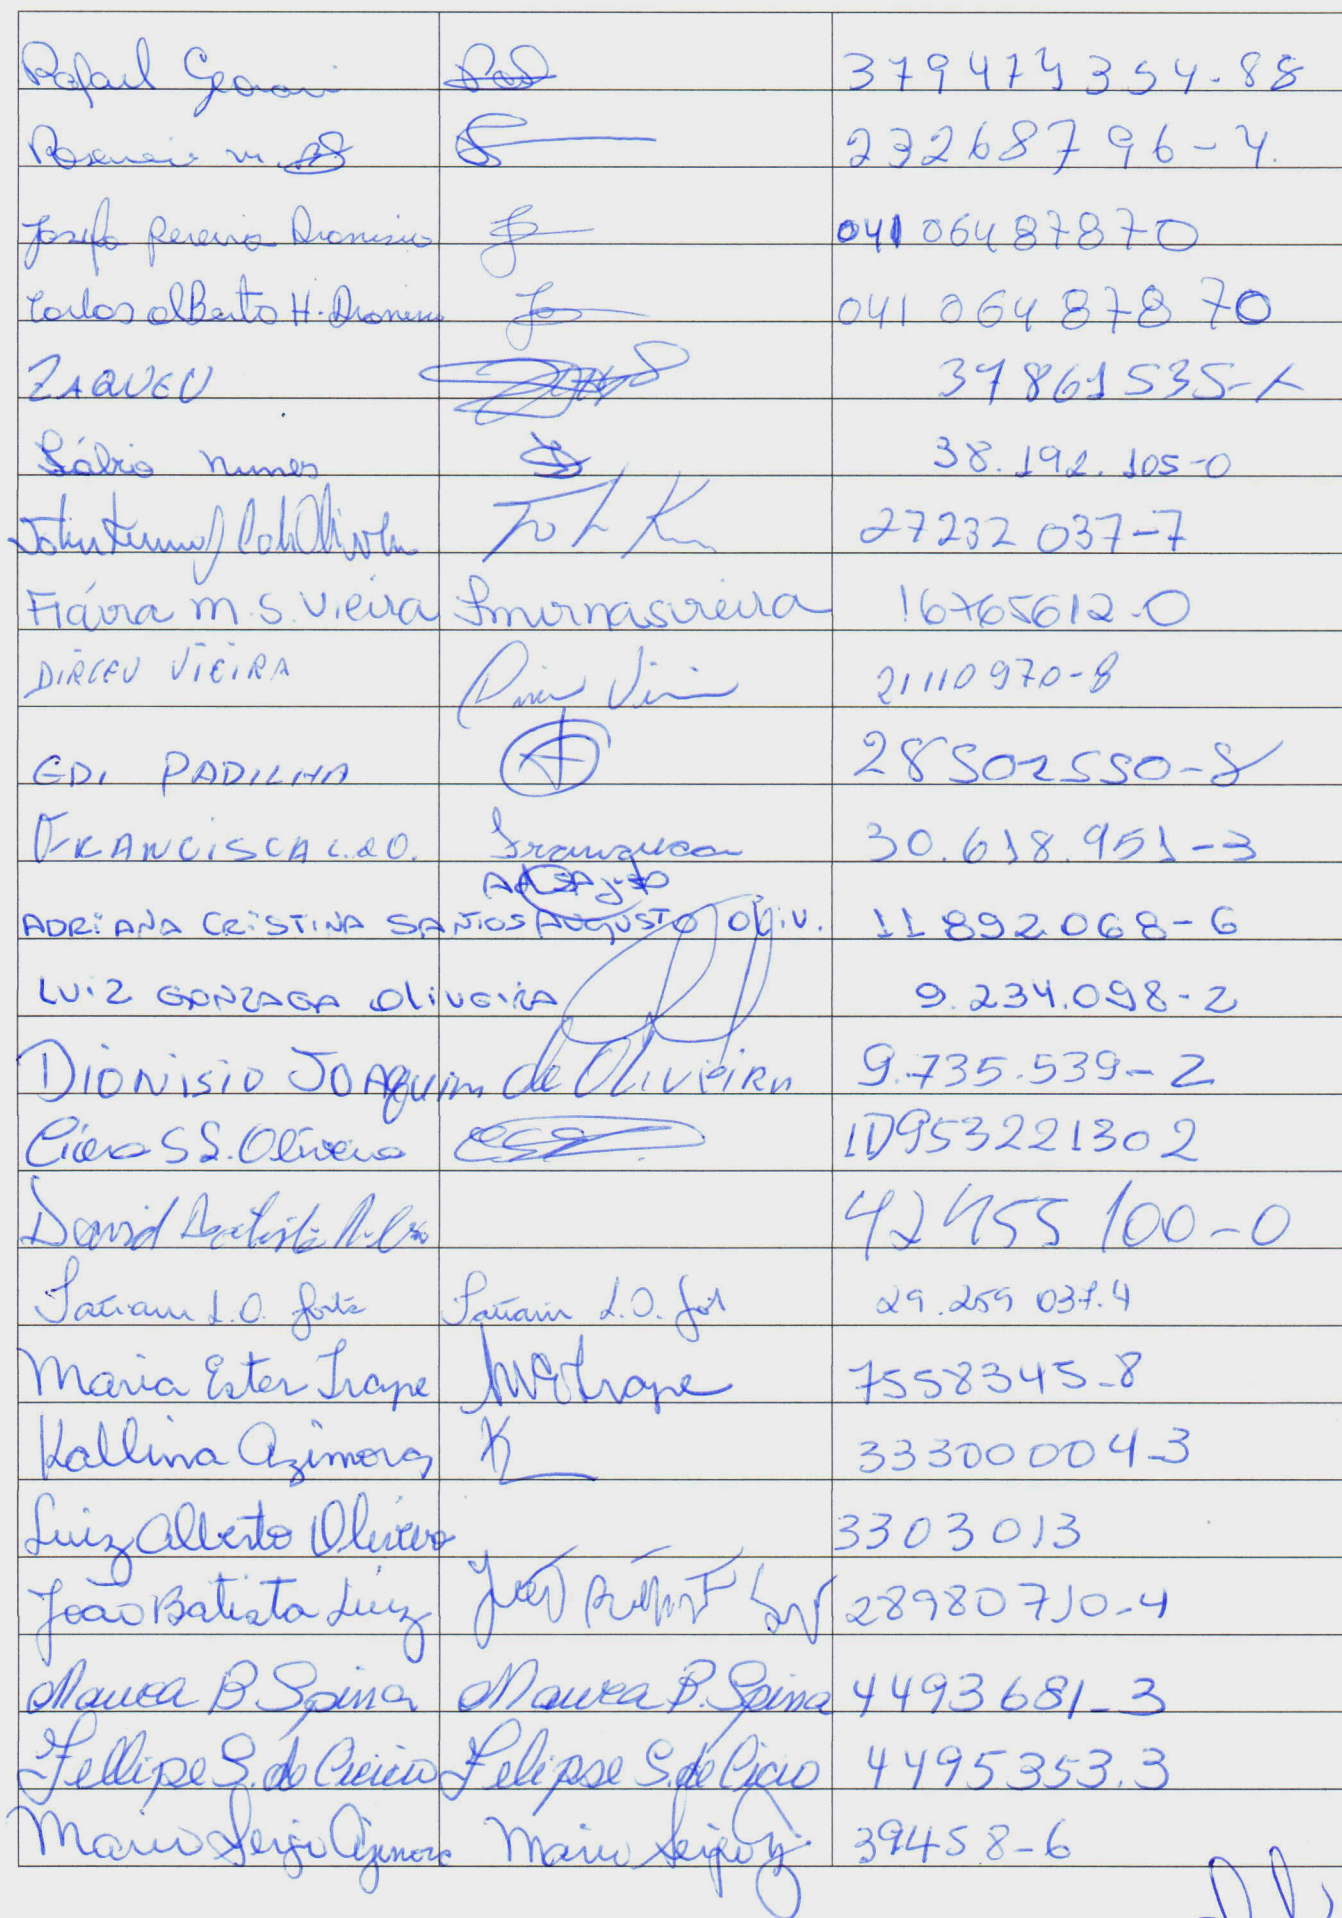 Rafael 379474354-88
232687796-4.
Josefa Pereira Dionisio 04106487870
Carlos Alberto H. Dionisio 04106487870
ZAQUEU 37861535-X
Fábio Nunes 38.192.105-0
27232037-7
Flávia M. S. Vieira 16765612-0
DIRCEU VIEIRA 21110970-8
EDI PADILHA 28502550-8
FRANCISCA 30.618.951-3
ADRIANA CRISTINA SANTOS AUGUSTO OLIV. 11892068-6
LUIZ GONZAGA OLIVEIRA 9.234.098-2
DIONISIO JOAQUIM de OLIVEIRA 9.735.539-2
S S. Oliveira 953221302
David 42455100-0
L.O. L.O. 29.259 037.4
Maria Ester Trape Trape 7558345-8
Kallina Azimovas K 33300004-3
Luiz Alberto Oliveira 3303013
João Batista Luiz 28980710-4
Maura B Spina Maura B. Spina 4493681-3
Fellipe S. de Felipse S. de 4495353.3
Mario Sergio Mario Sergio 39458-6